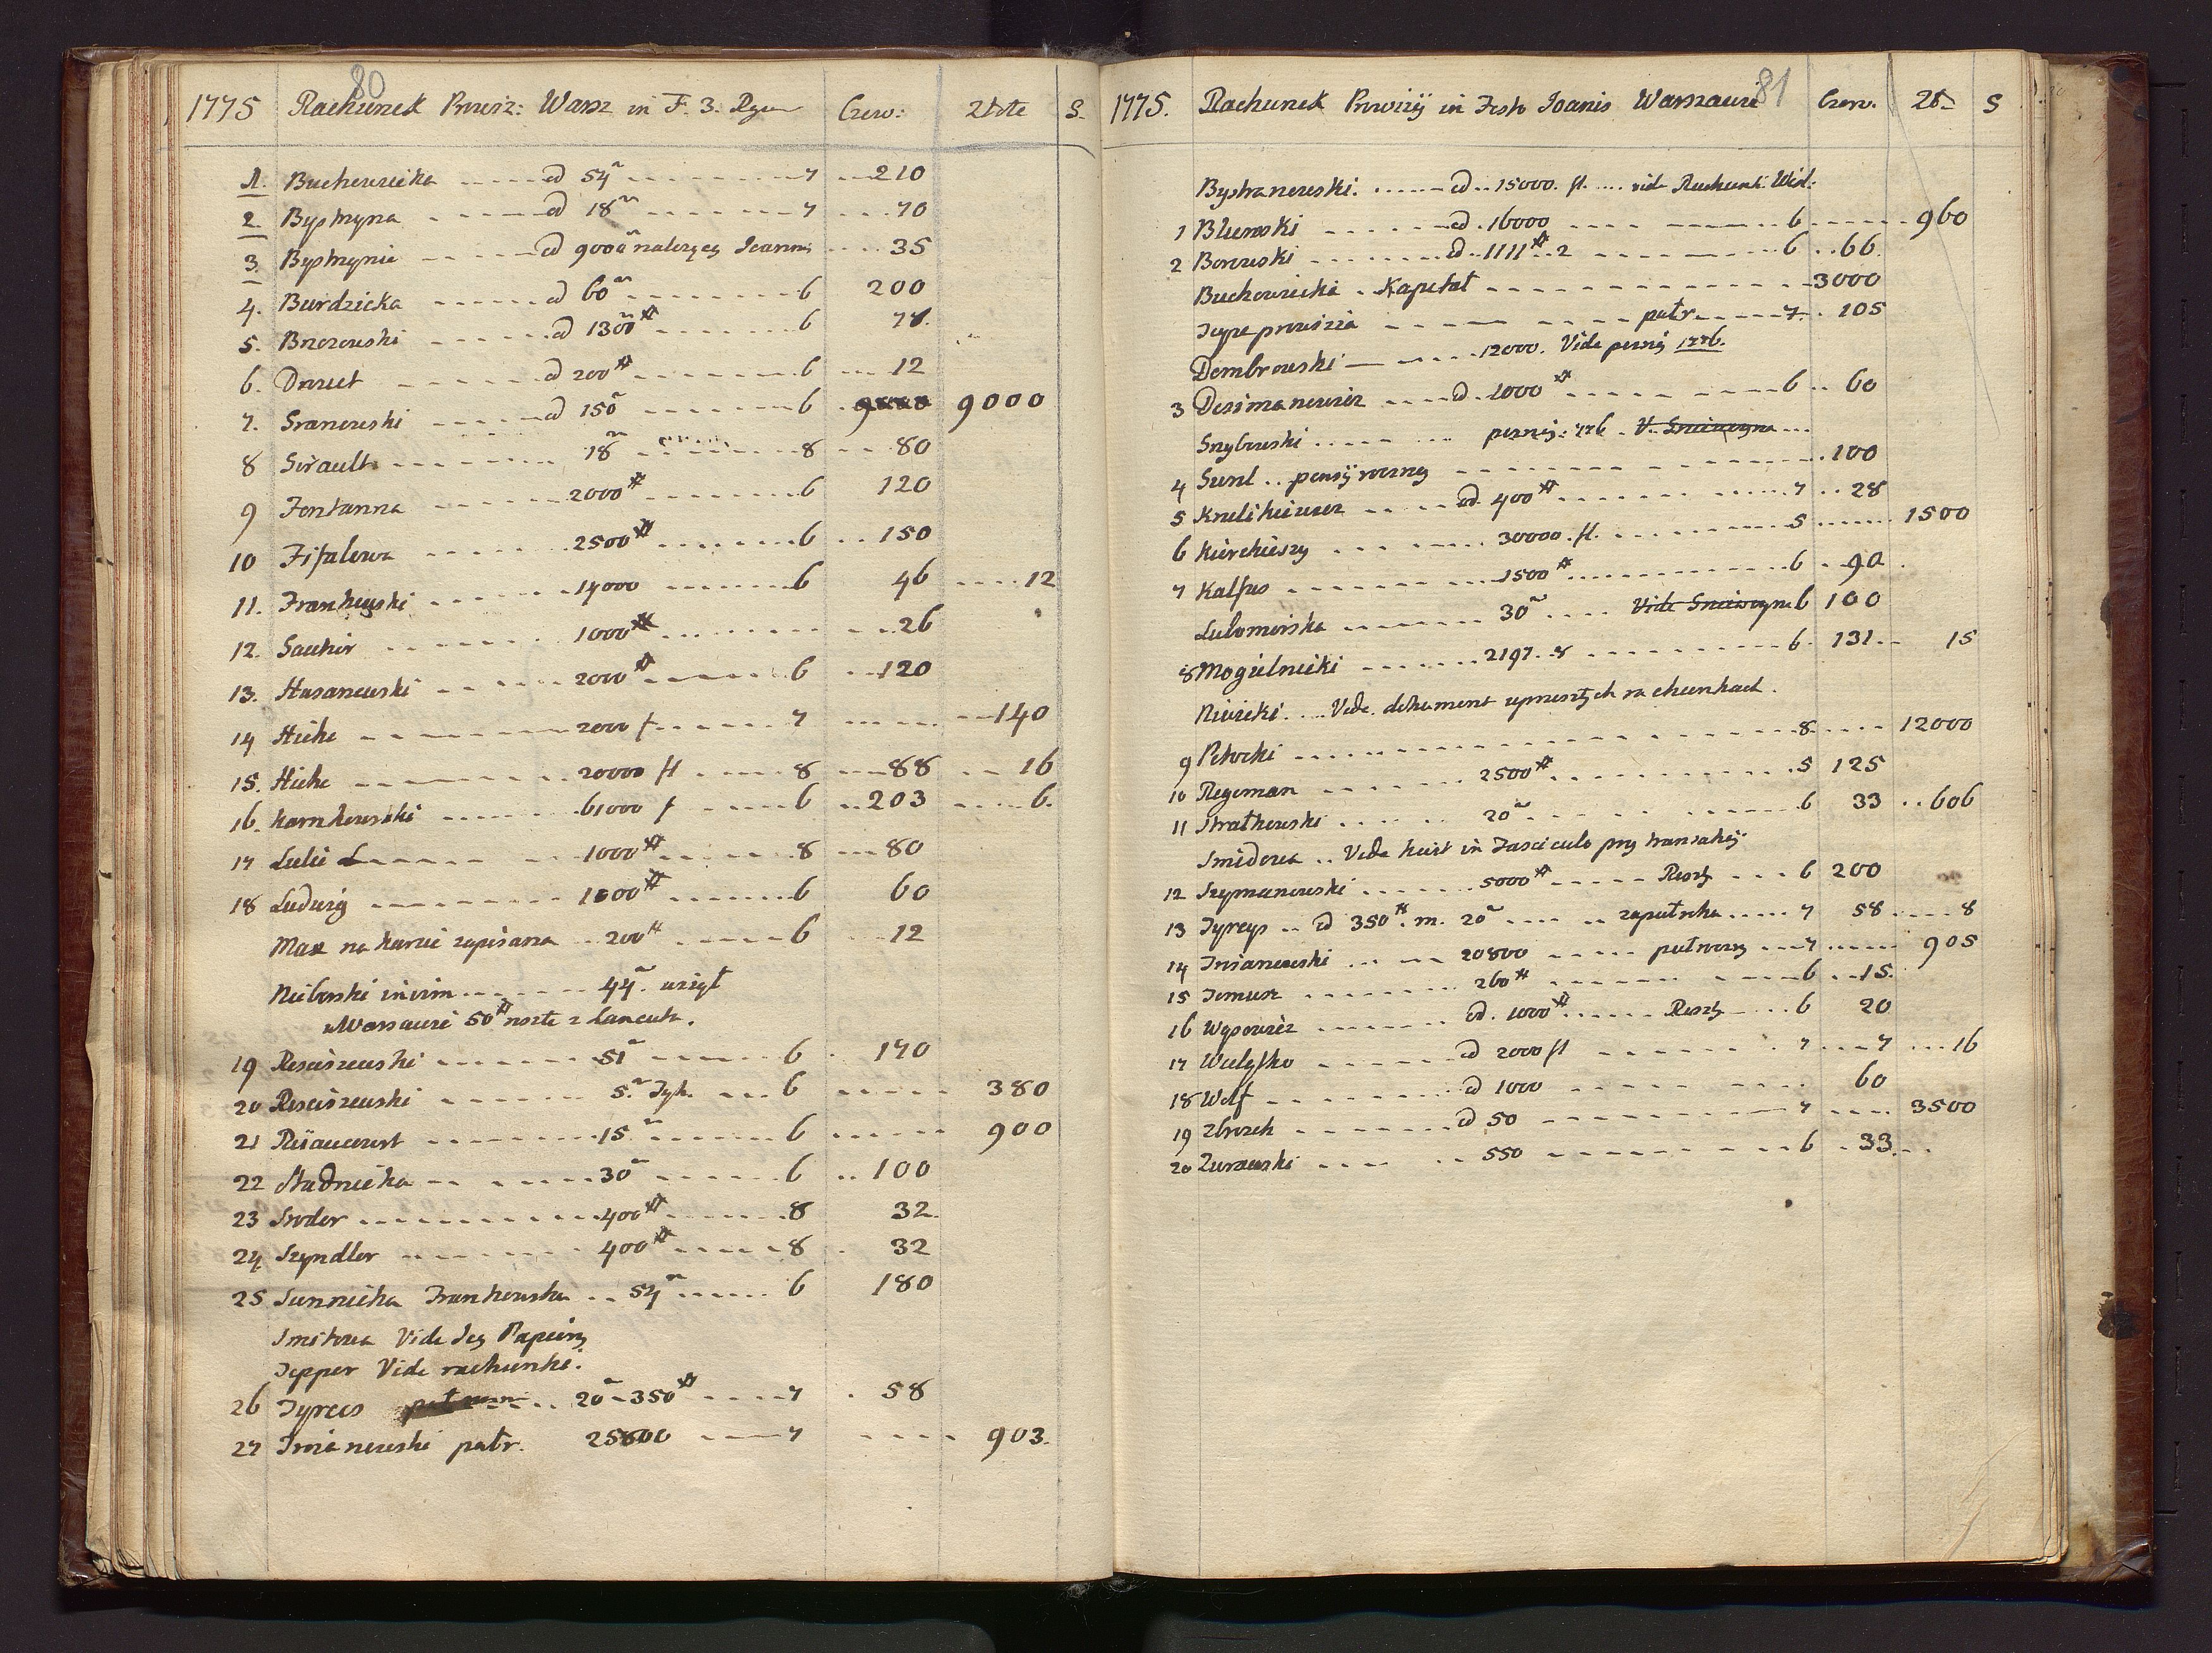 80
1775 Rachunek Prowiz: Warsz in F. 3. Regum Czerw: Złote S.
1. Buchowiecka ... od 54 ... 7 ... 210
2. Bystryna ... od 18 ... 7 ... 70
3. Bystrynie ... od 9000 należący Joannis ... 35
4. Burdzicka ... od 60 ... 6 200
5. Brzozowski ... od 1300# ... 6 78.
6. Drouet ... od 200# ... 6 ... 12
7. Granowski ... od 150 ... 6 9000 9000
8 Girault ... 18 ... 8 ... 80
9 Fontanna ... 2000# ... 6 120
10 Fifalowa ... 2500# ... 6 .. 150
11. Frankowski ... 14000 ... 6 46 ... 12
12. Gautier ... 1000# ... 26
13. Hasanowski ... 2000# ... 6 ... 120
14 Hiche ... 2000 f ... 7 ... 140
15. Hiche ... 20000 fl ... 8 ... 88 ... 16
16. Karnkowski ... 61000 f ... 6 .. 203 ... 6.
17 Lelie ... 1000# ... 8 ... 80
18 Ludwig ... 1000# ... 6 60
Max na karcie zapisana .. 200# ... 6 ... 12
Nieborski ... 44. wziął
w Warszawie 50# resztę z Łańcuta.
19 Rosciszewski ... 51 ... 6 . 170
20 Rosciszewski ... 5. Tyh. ... 6 ... 380
21 Riaucourt ... 15 ... 6 ... 900
22 Stadnicka ... 30 ... 6 .. 100
23 Sroder ... 400# ... 8 32.
24 Szyndler ... 400# ... 8 . 32
25 Sunnicka Frankowska .. 54 ... 6 180
Smitowa Vide Jey Papiery
Tepper Vide rachunki.
26 Tyrees ... 20 - 350# ... 7 . 58
27 Troianowski półr. 25800 ... 7 ... 903.
81
1775. Rachunek Prowizij in Festo Joanis Warszawie Czerw. Zł. S
Bystranowski. ... od .. 15000. fl. ... vide Rachunk: Wiel:
1 Blumski ... od . 16000 ... 6 ... 960
2 Borowski ... od .. 1111# .. 2 ... 6 .. 66.
Buchowiecki . Kapitał ... 3000
Teyze prowizia ... półr ... 7 . 105
Dembrowski — ... 12000. Vide perney 1776.
3 Desimanowicz ... od . 1000# ... 6 .. 60
Grybowski ... perney: 776 . V. Sniewczyna ...
4 Gurl .. pensij roczney ... 100
5 Knelikieuser ... od 400# ... 7 .. 28
6 Kierchieszy ... 30000 . fl. ... 5 ... 1500
7 Kalfus ... 1500# ... 6 .. 90 .
Lubomirska ... 30 ... Vide Sniewczyna 6 100
8 Mogielnicki ... 2197. 8 ... 6. 131 .. 15
Nivicki. ... Vide. dokument upowszych rachunkach .
9 Potocki ... 8. ... 12000
10 Regeman ... 2500# ... 5 125
11 Strałkowski ... 20 ... 6 33 .. 606
Smidowa .. Vide kwit in Fasciculo przy transakcij
12 Szymanowski ... 5000# ... Reszty ... 6 200
13 Tyreys .. od 350# . m. 20 ... zapółroka ... 7 58 ... 8
14 Troianowski ... 20800 ... półroczny ... 7 ... 905
15 Tomusz ... 260# ... 6 .. 15.
16 Wąsowicz ... od . 1000# ... Reszty ... 6 20
17 Wielysko ... od 2000 fl ... 7 ... 7 ... 16
18 Wolf ... od 1000 ... 60
19 Zbroseh ... od 50 ... 7 ... 3500
20 Zurawski ... 550 ... 6 . 33 ...